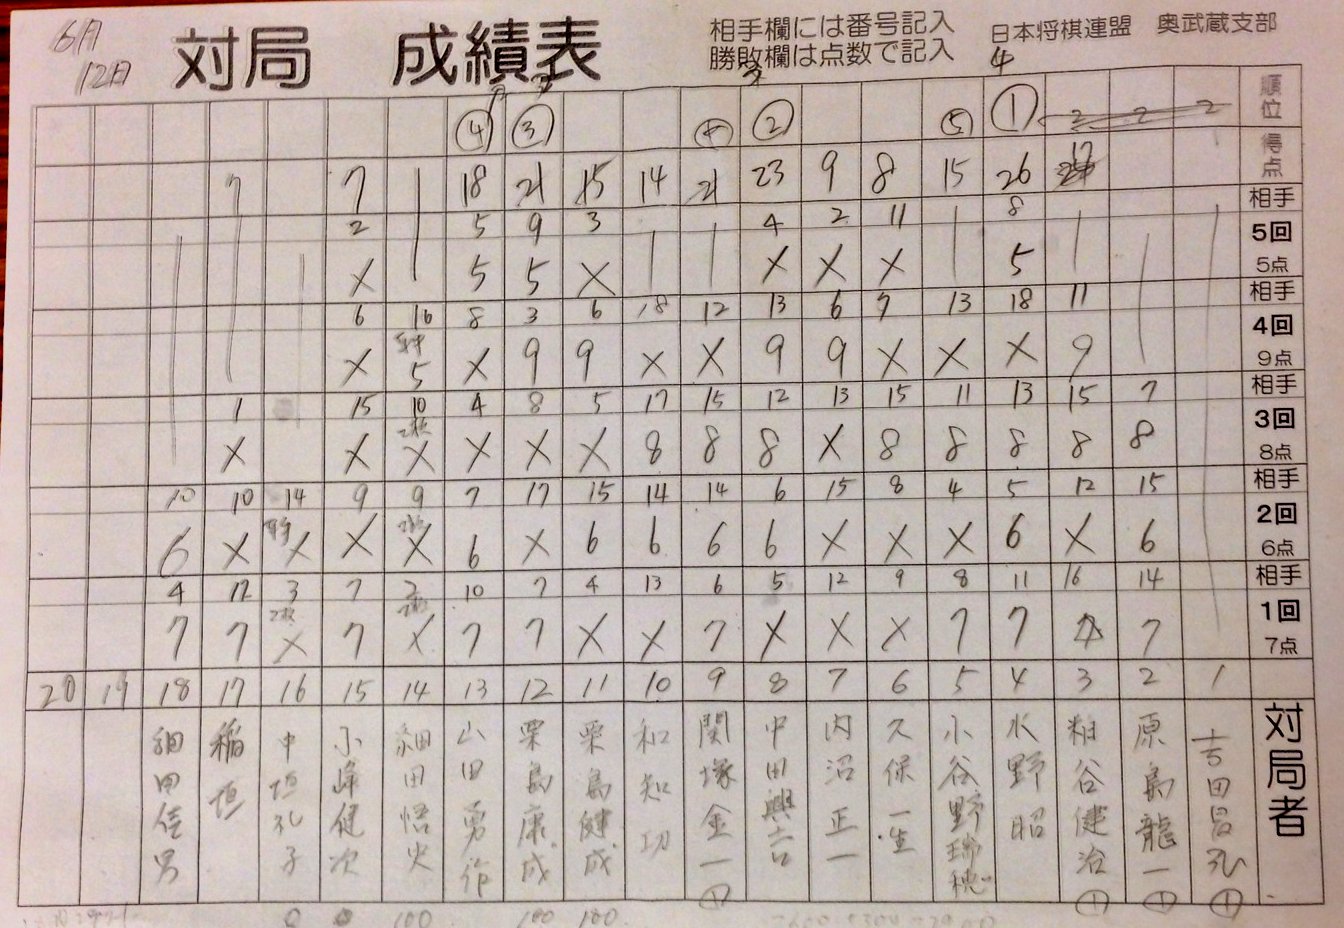 6月
12日
対局 成績表
相手欄には番号記入
勝敗欄は点数で記入
日本将棋連盟 奥武蔵支部
4
④ ③ ② ⑤ ① 順位
7 7 18 21 15 14 21 23 9 8 15 26 17 得点
2 5 9 3 4 2 11 8 相手
× 5 5 × × × × 5 5回 5点
6 16 8 3 6 18 12 13 6 7 13 18 11 相手
× 5 × 9 9 × × 9 9 × × × 9 4回 9点
1 15 10 4 8 5 17 15 12 13 15 11 13 15 7 相手
× × × × × × 8 8 8 × 8 8 8 8 8 3回 8点
10 10 14 9 9 7 17 15 14 14 6 15 8 4 5 12 15 相手
6 × × × × 6 × 6 6 6 6 × × × 6 × 6 2回 6点
4 12 3 7 2 10 7 4 13 6 5 12 9 8 11 16 14 相手
7 7 × 7 × 7 7 × × 7 × × × 7 7 7 7 1回 7点
20 19 18 17 16 15 14 13 12 11 10 9 8 7 6 5 4 3 2 1
対局者
吉田昌弘
原島龍一
粕谷健治
水野昭
小谷野瑞穂
久保一生
内沼正一
中田興吉
関塚金一
和知功
栗島健成
栗島康成
山田勇作
細田悟史
小峰健次
中垣礼子
稲垣
細田佳男
0 0 100 100 100